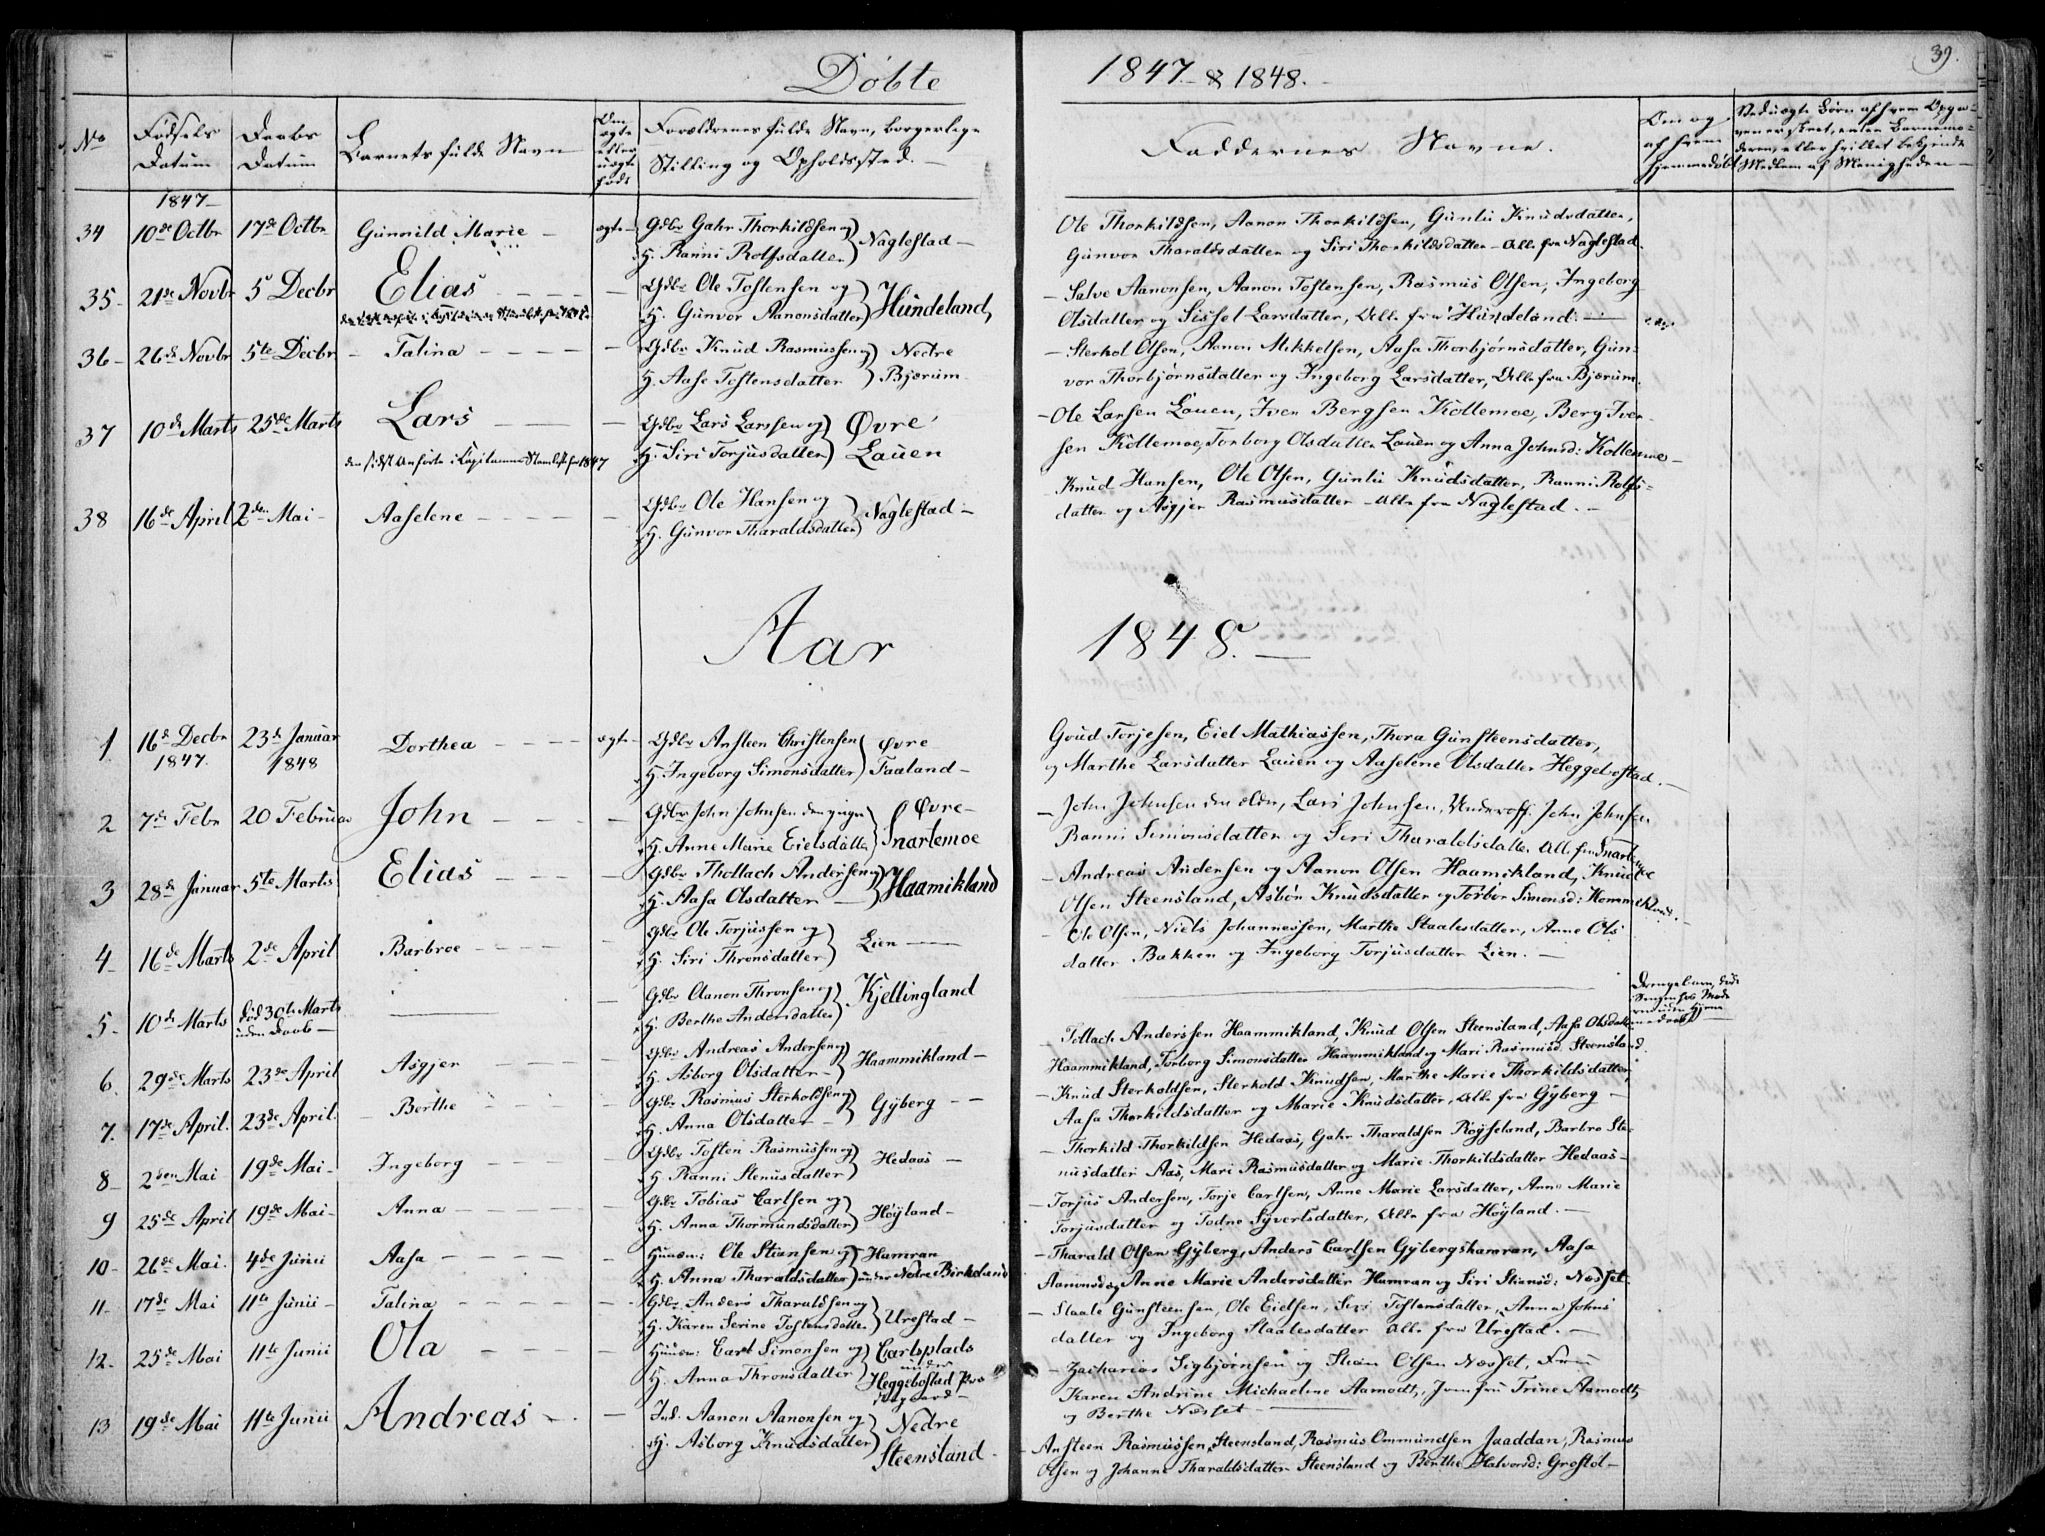 Døbte
1847 & 1848.
39.
No
Fødsels Datum
Daabs Datum
Barnets fulde Navn
Om ægte eller uægte født
Forældrenes fulde Navn, borgerlige
Stilling og Opholdssted.
Faddernes Navne.
Om og af hvem hjemmedøbt
1847
34 10de Octbr 17de Octbr Gunnild Marie ægte Gdbr Gahr Thorkildsen og
H. Ranni Rolfsdatter Naglestad
Ole Thorkildsen, Aanon Thorkildsen, Gunlu Knudsdatter,
Gunvor Tharaldsdatter og Siri Thorkildsdatter Alle fra Naglestad
35 21de Novbr 5 Decbr Elias Gdbr Ole Tostensen og
H. Gunvor Aanonsdatter Hundeland,
Salve Aanonsen, Aanon Tostensen, Rasmus Olsen, Ingeborg
Olsdatter og Sissel Larsdatter, Alle fra Hundeland.
36 26de Novbr 5te Decbr Talina Gdbr Knud Rasmussen og
H. Aase Tostensdatter Nedre Bjærum
Sterkol Olsen, Aanon Mikkelsen, Aasa Thorbjørnsdatter, Gun-
vor Thorbjørnsdatter og Ingeborg Larsdatter, Alle fra Bjærum.
37 10de Marts 25de Marts Lars Gdbr Lars Larssen og
H. Siri Torjusdatter Øvre Lauen
den sidst anførte i Capitainens Mandtal for 1847
Ole Larsen Lauen, Iver Bergsen Kollemoe, Berg Iver-
sen Kollemoe, Torborg Olsdatter Lauen og Anna Johnsd: Kollemoe
38 16de April 2den Mai Aaselene Gdbr Ole Hansen og
H. Gunvor Tharaldsdatter Naglestad
Knud Hansen, Ole Olsen, Gunlu Knudsdatter, Ranni Rolfs-
datter og Asgjer Rasmusdatter Alle fra Naglestad.
Aar 1848.
1 16de Decbr 1847. 23de Januar 1848 Dorthea ægte Gdbr Ansteen Christensen
H. Ingeborg Simonsdatter Øvre Faaland
Goud Torjesen, Eiel Mathiassen, Thora Gunsteensdatter,
og Marthe Larsdatter Lauen og Aaselene Olsdatter Heggebostad.
2 7de Febr 20 Februar John Gdbr John Johnsen den yngre
H. Anne Marie Eielsdatter Øvre Snartemoe
John Johnsen den eldre, Lars Johnsen, Underoff. John Johnsen
Ranni Simonsdatter og Siri Tharaldsdatter Alle fra Snartemoe
3 28de Januar 5te Marts Elias Gdbr Thollach Andersen og
H. Aasa Olsdatter Haamikland
Andreas Andersen og Aanon Olsen Haamikland, Knud
Olsen Steensland, Asbor Knudsdatter og Torbor Simonsd:
4 16de Marts 2de April Barbroe Gdbr Ole Torjussen og
H. Siri Thronsdatter Lien
Ole Olsen, Niels Johannessen, Marthe Staalesdatter, Anne Ols
datter Bakken og Ingeborg Torjusdatter Lien.
5 10de Marts død 30te Marts uden Daab Gdbr Aanon Thronsen og
H. Berthe Andersdatter Kjellingland
6. 29de Marts 23de April Asgjer Gdbr Andreas Andersen og
H. Asborg Olsdatter Haammikland
Tollach Anderssen Haammikland, Knud Olsen Steensland, Aasa Olsdatter
Haammikland, Torborg Simonsdatter Haammikland og Mari Rasmusd. Steensland.
7. 17de April. 23de April. Berthe Gdbr Rasmus Sterkoldsen og
H. Anna Olsdatter Gyberg
Knud Sterkoldsen, Sterkold Knudsen, Marthe Marie Thorkildsdatter,
Aasa Thorkildsdatter og Marie Knudsdatter, Alle fra Gyberg
8 2den Mai 19de Mai Ingeborg Gdbr Tosten Rasmussen og
H. Ranni Stenusdatter Hedaas
Thorkild Thorkildsen Hedaas, Gahr Tharaldsen Røyseland, Barbro Ste-
nusdatter Aas, Mari Rasmusdatter og Marie Thorkildsdatter Hedaas
9 25de April 19de Mai Anna Gdbr Tobias Carlsen og
H. Anna Thormundsdatter Høyland
Torjus Andersen, Torje Carlsen, Anne Marie Larsdatter, Anne Marie
Torjusdatter og Todne Syvertsdatter, Alle fra Høyland.
10 26de Mai. 4de Junii Aasa Huusm: Ole Stiansen og
H. Anna Tharaldsdatter Hamran under Nedre Birkeland
Tharald Olsen Gyberg, Anders Carlsen Gybergshamran, Aasa
Aanonsd og Anne Marie Andersdatter Hamran og Siri Stiansd: Næsset
11 17de Mai 11te Junii Talina Gdbr Anders Tharaldsen og
H. Karen Serine Tostensdatter Urestad
Staale Gunsteensen, Ole Eielsen, Siri Tostensdatter, Anna Johns
datter og Ingeborg Staalesdatter Alle fra Urestad.
12. 25de Mai 11te Junii Ola Huusm: Carl Simonsen og
H. Anna Thronsdatter Carlsplads under Heggebostad Præstegaard
Zacharias Sigbjørnsen og Stian Olsen Næsset, Fru
Karen Andrine Michaeline Aamodt, Jomfru Trine Aamodt,
og Berthe Næsset
13 19de Mai 11te Junii Andreas Ind. Aanon Aanonsen og
H. Asborg Knudsdatter Nedre Steensland
Ansteen Rasmussen Steensland, Rasmus Ommundsen Jaaddan, Rasmus
Olsen og Johanne Tharaldsdatter Steensland og Berthe Halvorsd: